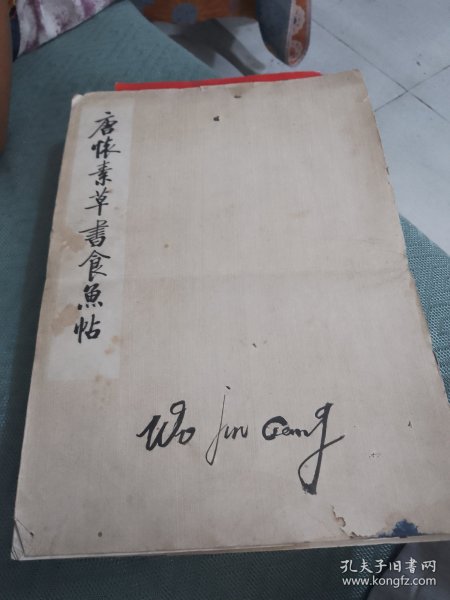 唐怀素草書食魚帖
Wo jin Gang
孔夫子旧书网
www.kongfz.com